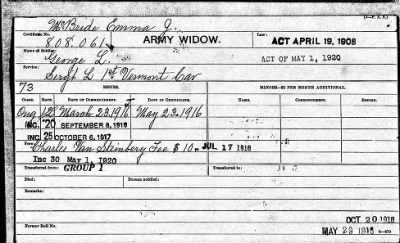 McBride Emma J.
Certificate No. 808.061 ARMY WIDOW. Law: ACT APRIL 19, 1908
Name of Soldier: George L. ACT OF MAY 1, 1920
Service: Sergt L 1st Vermont Cav
73 ISSUES. MINORS—$2 PER MONTH ADDITIONAL.
CLASS. RATE. DATE OF COMMENCEMENT. DATE OF CERTIFICATE. NAME. COMMENCEMENT.
Orig 12 March 23.1916 May 23.1916
INC. 20 SEPTEMBER 8, 1916
INC. 25 OCTOBER 6, 1917
Charles Van Steinberg Fee $10.- JUL 17 1916
Inc 30 May 1, 1920
Transferred from: GROUP 1 Transferred to:
Died: Person notified:
Remarks:
OCT 20 1916
Former Roll No. MAY 29 1916